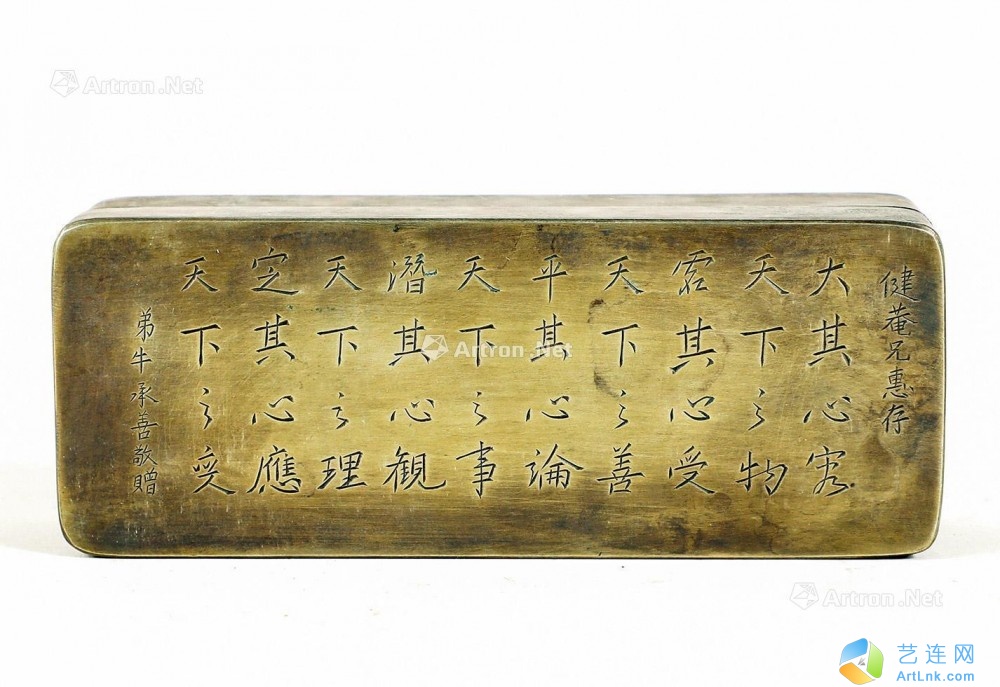 健菴兄惠存
大其心容
天下之物
虛其心受
天下之善
平其心論
天下之事
潛其心觀
天下之理
定其心應
天下之变
弟牛承善敬贈
Artron.Net
Artron.Net
Artron.Net
艺连网
ArtLnk.com